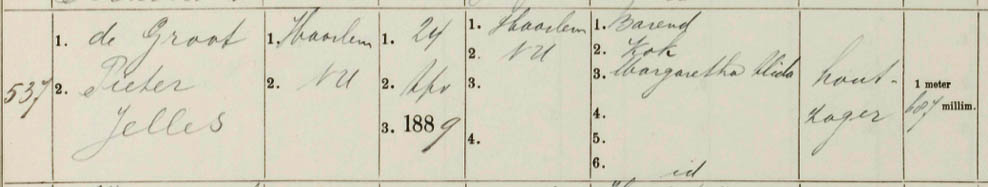 537
1. de Groot
2. Pieter
Jelles
1. Haarlem
2. NH
1. 24
2. Apr
3. 1889
1. Haarlem
2. NH
3.
4.
1. Barend
2. Kok
3. Margaretha Alida
4.
5.
6.
id
hout-
zager
1 meter
687 millim.